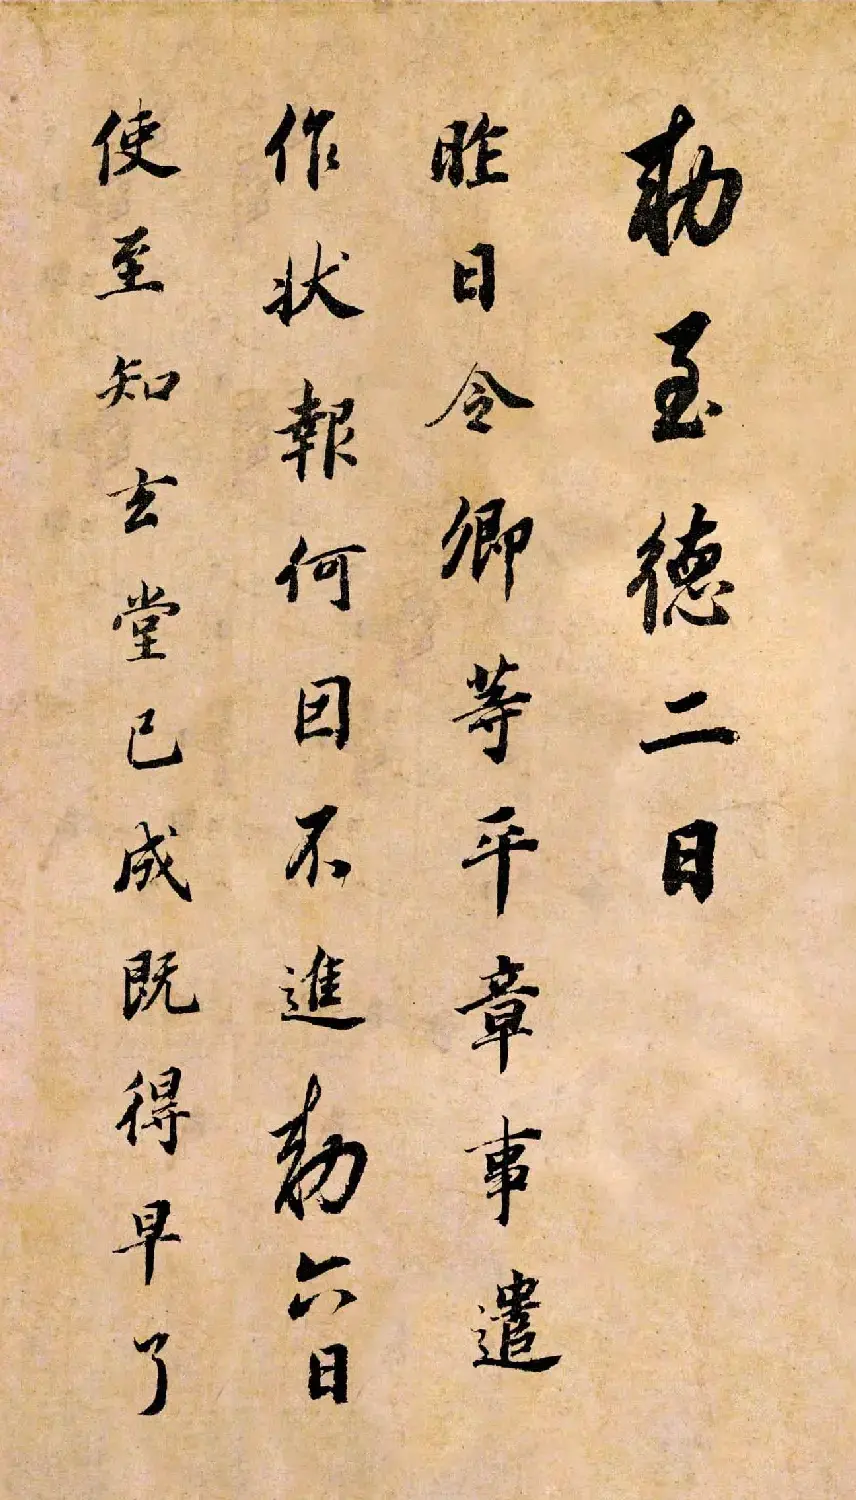 勅至德二日
昨日令卿等平章事遣
作狀報何因不進勅六日
使至知玄堂已成既得早了